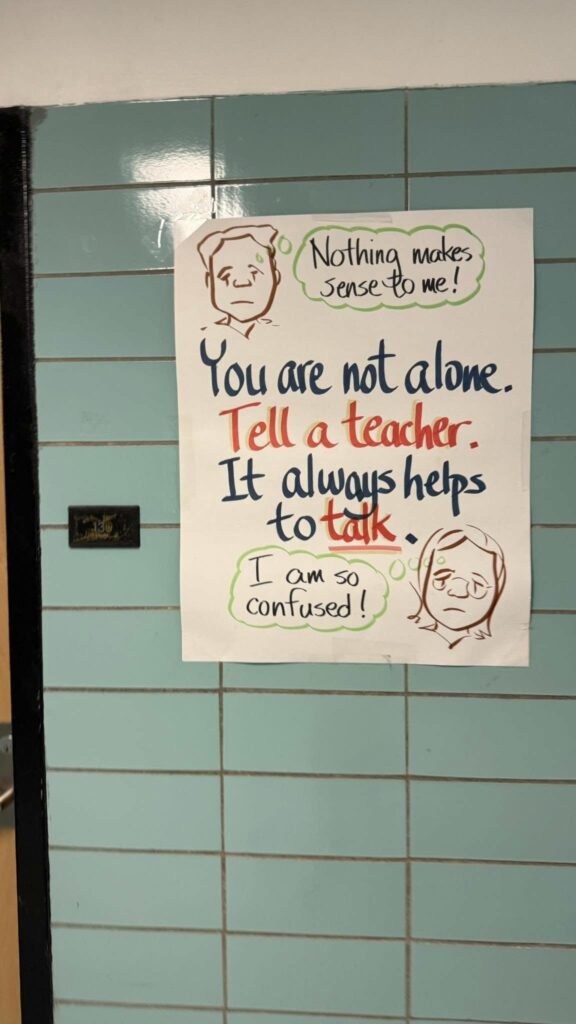 Nothing makes
sense to me!
You are not alone.
Tell a teacher.
It always helps
to talk.
I am so
confused!